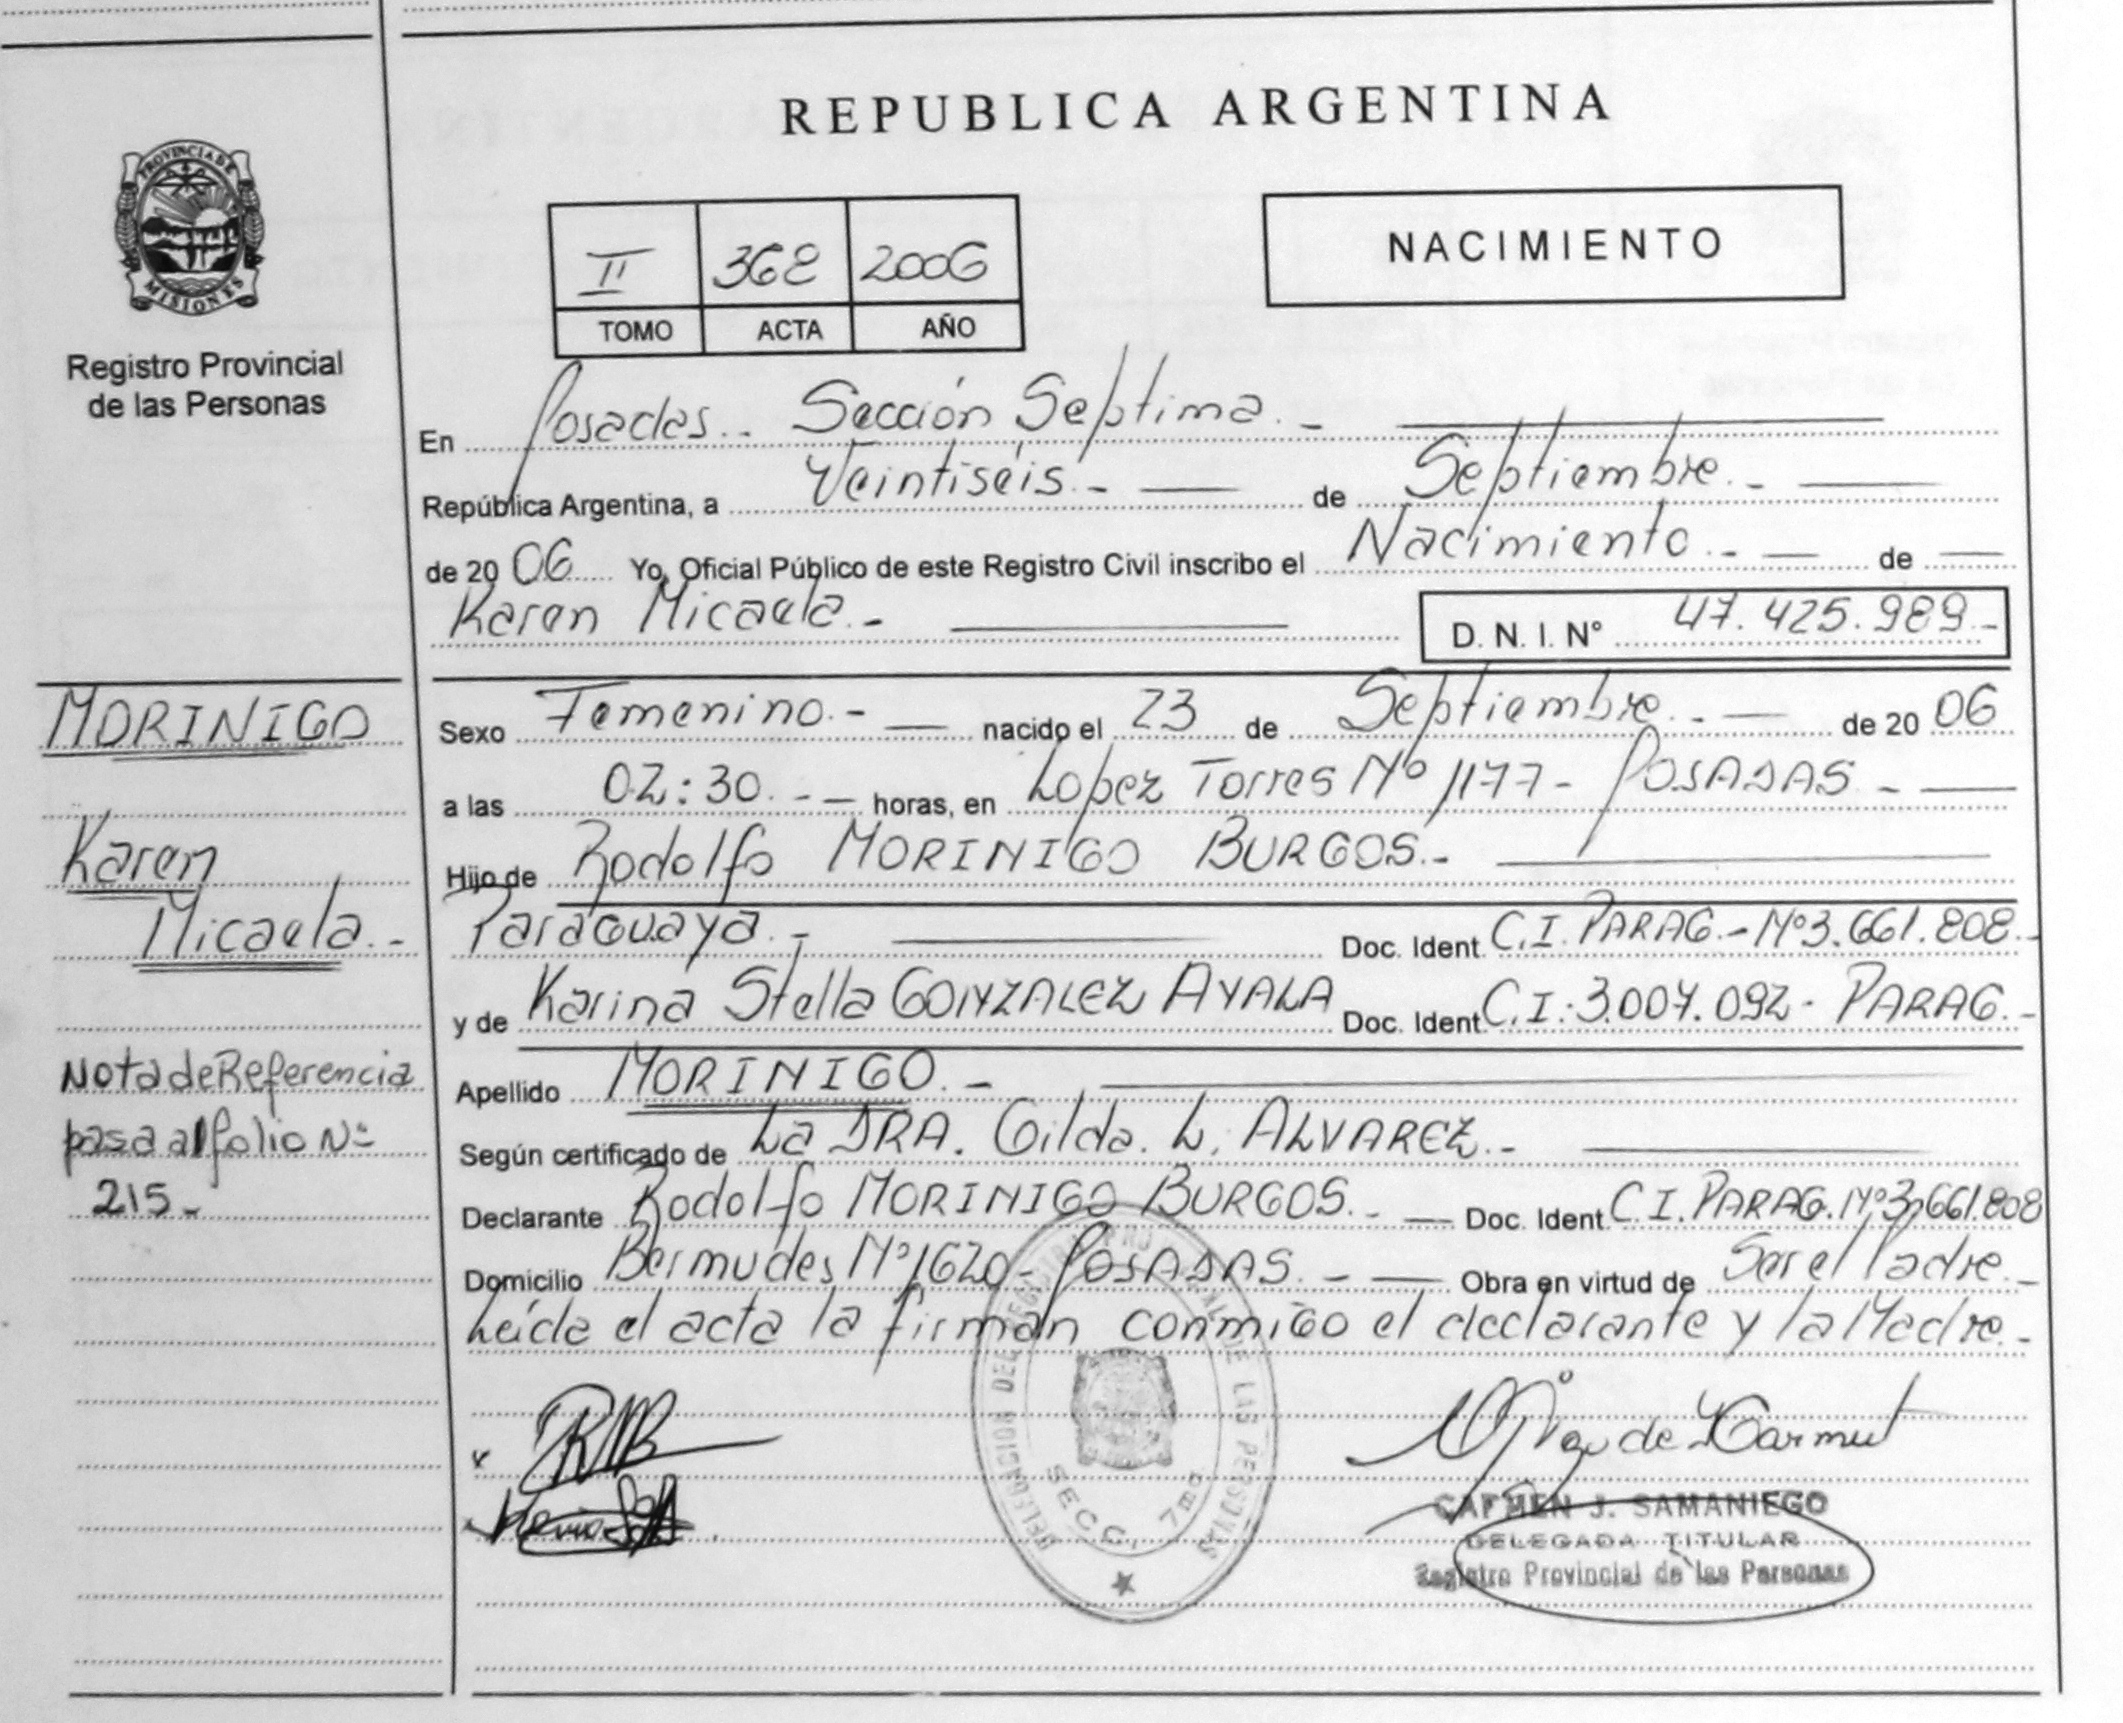 REPUBLICA ARGENTINA
PROVINCIA DE
MISIONES
Registro Provincial
de las Personas
II 368 2006
TOMO ACTA AÑO
NACIMIENTO
En Posadas.. Sección Septima.-
República Argentina, a Veintiséis.- de Septiembre.-
de 2006 Yo, Oficial Público de este Registro Civil inscribo el Nacimiento.- de
Karen Micaela.- D. N. I. N° 47.425.989.-
MORINIGO
Karen
Micaela.-
Nota de Referencia
pasa al folio Nº
215-
Sexo Femenino.- nacido el 23 de Septiembre.- de 2006
a las 02:30.- horas, en Lopez Torres Nº 1177- POSADAS -
Hijo de Rodolfo MORINIGO BURGOS.-
Paraguaya.- Doc. Ident. C.I. PARAG.-Nº3.661.808.-
y de Karina Stella GONZALEZ AYALA Doc. Ident. C.I.:3.007.092- PARAG.-
Apellido MORINIGO.-
Según certificado de La DRA. Gilda. L. ALVAREZ.-
Declarante Rodolfo MORINIGO BURGOS.- Doc. Ident. C.I. PARAG. Nº3.661.808
Domicilio Bermudes Nº1620- POSADAS.- Obra en virtud de Ser el Padre.-
Leída el acta la firman conmigo el declarante y la Madre.-
DELEGACION DEL REGISTRO PROVINCIAL DE LAS PERSONAS
SECC. 7ma
CARMEN J. SAMANIEGO
DELEGADA TITULAR
Registro Provincial de las Personas